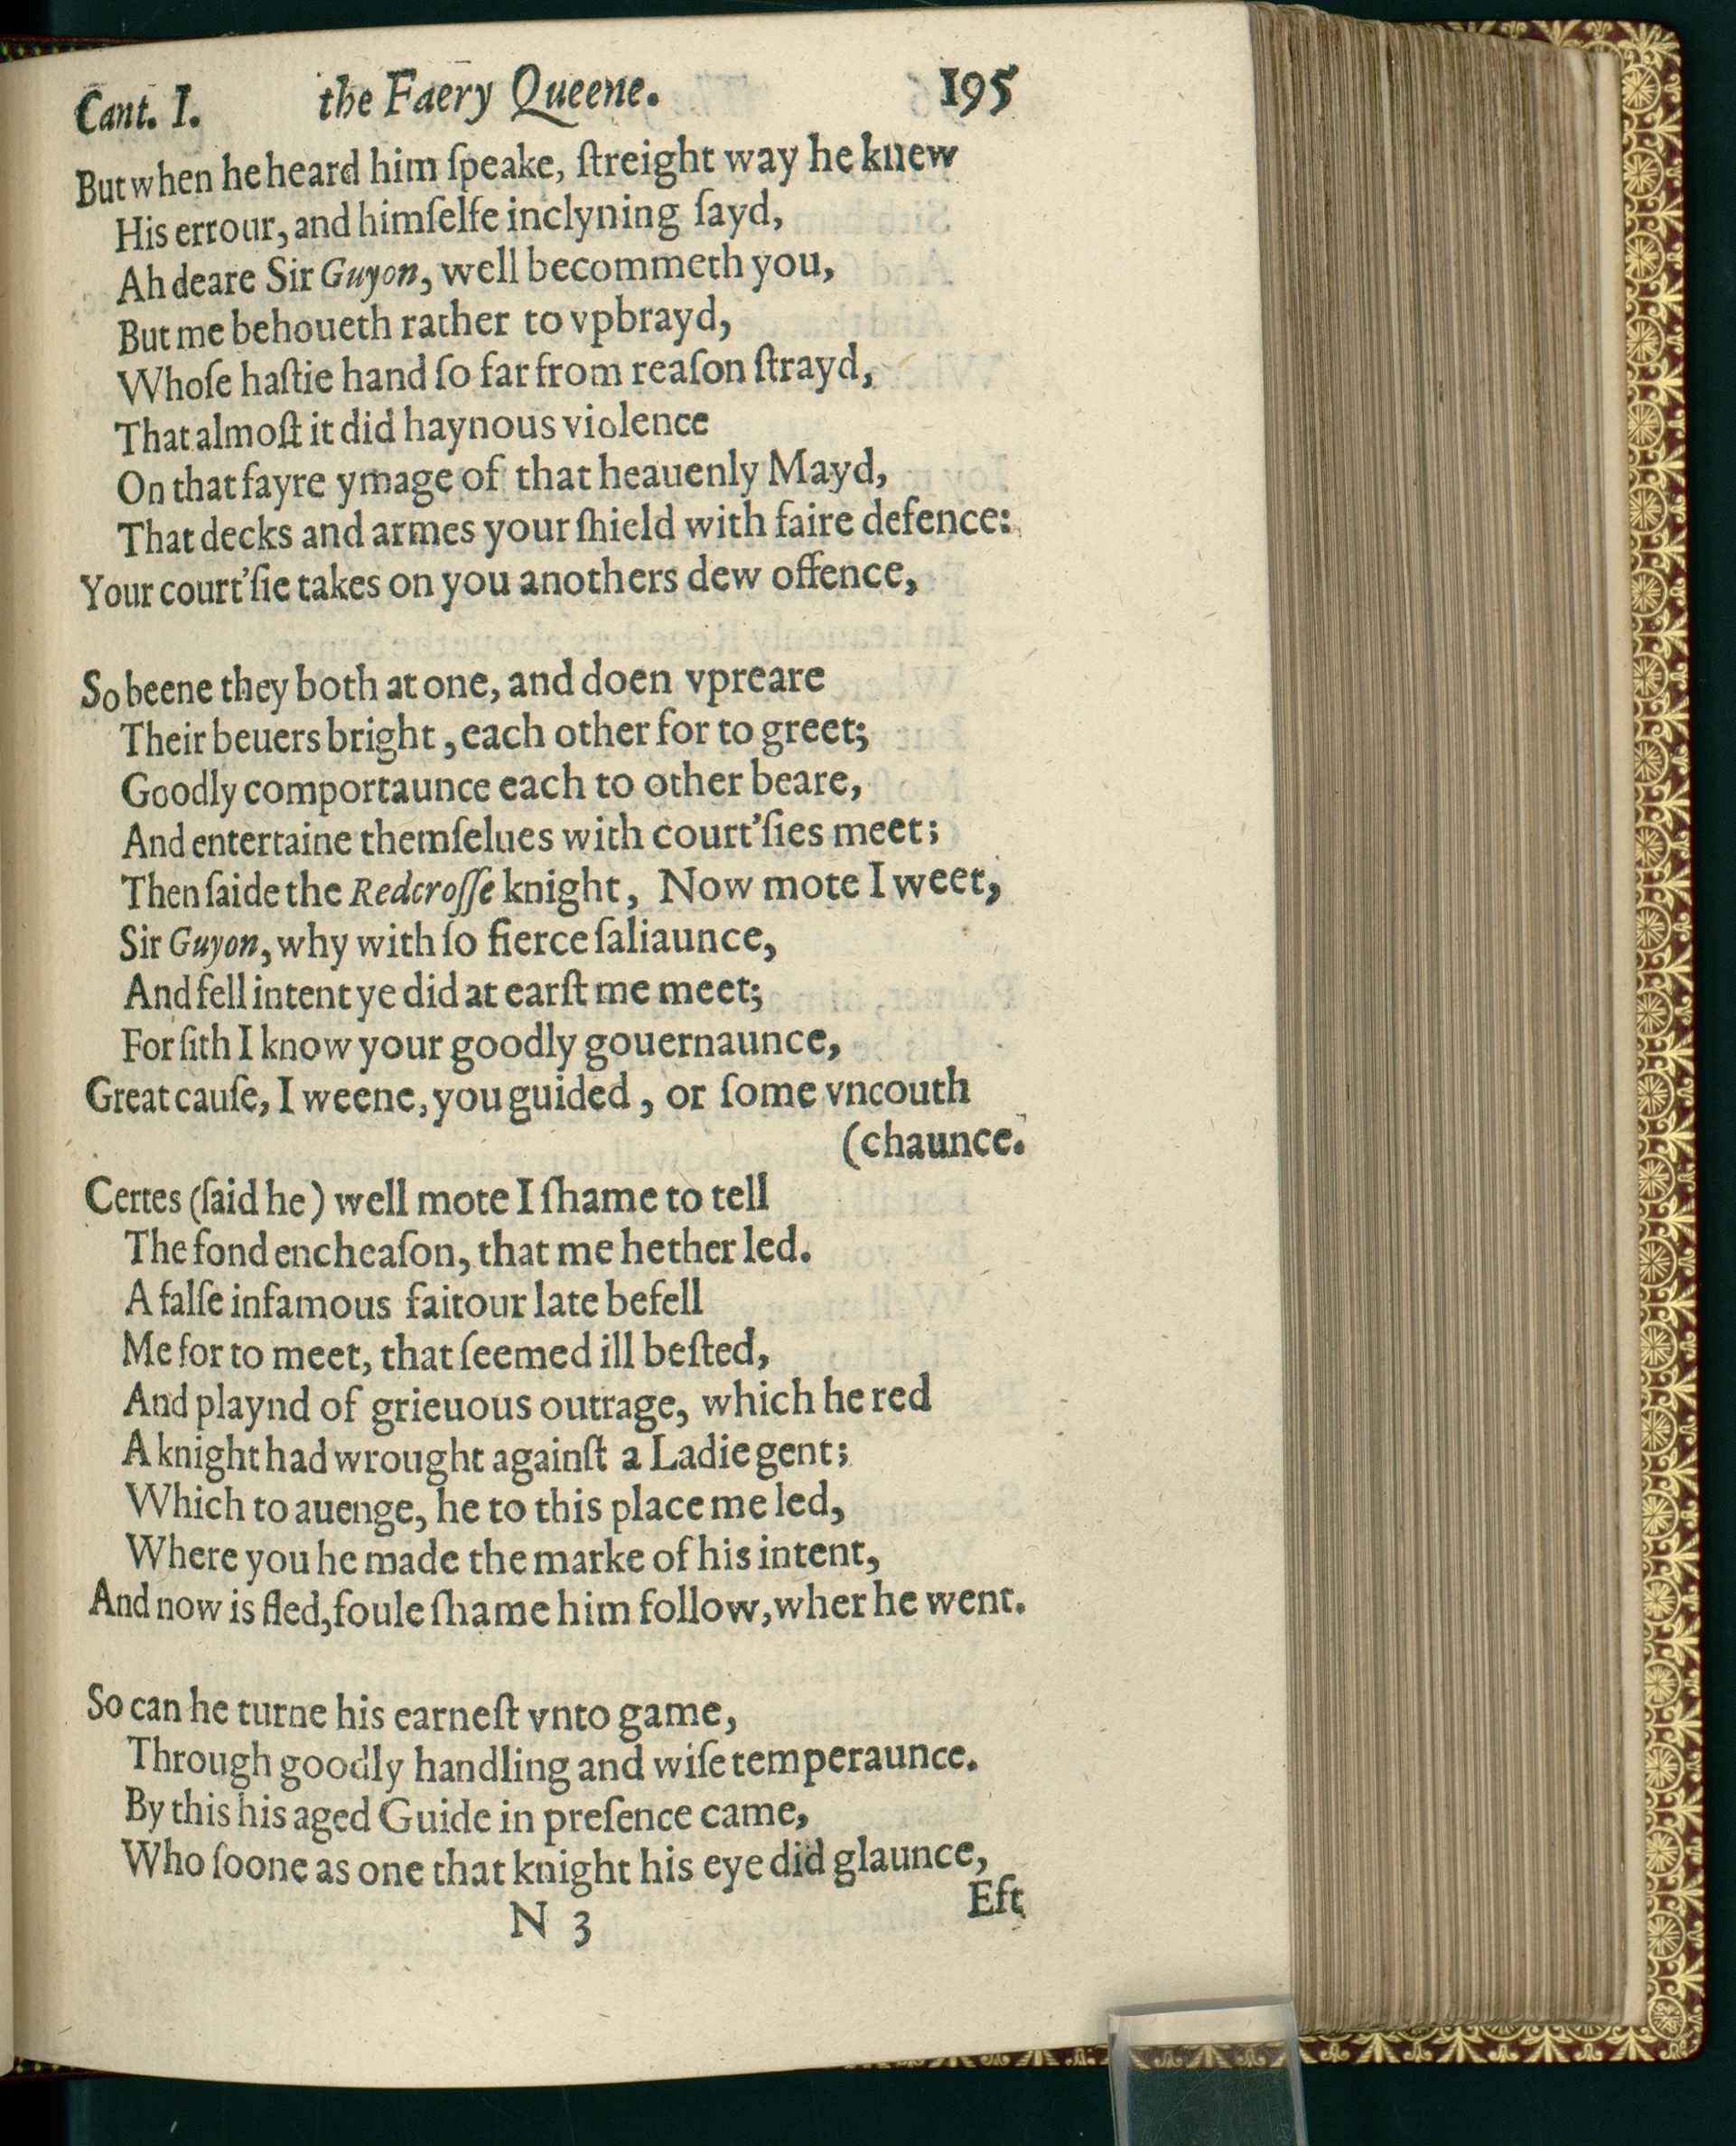 Cant. I. the Faery Queene. 195
But when he heard him ſpeake, ſtreight way he knew
His errour, and himſelfe inclyning ſayd,
Ah deare Sir Guyon, well becommeth you,
But me behoueth rather to vpbrayd,
Whoſe haſtie hand ſo far from reaſon ſtrayd,
That almoſt it did haynous violence
On that fayre ymage of that heauenly Mayd,
That decks and armes your ſhield with faire defence:
Your court'ſie takes on you anothers dew offence,
So beene they both at one, and doen vpreare
Their beuers bright, each other for to greet;
Goodly comportaunce each to other beare,
And entertaine themſelues with court'ſies meet;
Then ſaide the Redcroſſe knight, Now mote I weet,
Sir Guyon, why with ſo fierce ſaliaunce,
And fell intent ye did at earſt me meet;
For ſith I know your goodly gouernaunce,
Great cauſe, I weene, you guided, or ſome vncouth
(chaunce.
Certes (ſaid he) well mote I ſhame to tell
The fond encheaſon, that me hether led.
A falſe infamous faitour late befell
Me for to meet, that ſeemed ill beſted,
And playnd of grieuous outrage, which he red
A knight had wrought againſt a Ladie gent;
Which to auenge, he to this place me led,
Where you he made the marke of his intent,
And now is fled, foule ſhame him follow, wher he went.
So can he turne his earneſt vnto game,
Through goodly handling and wiſe temperaunce.
By this his aged Guide in preſence came,
Who ſoone as one that knight his eye did glaunce,
Eft
N 3